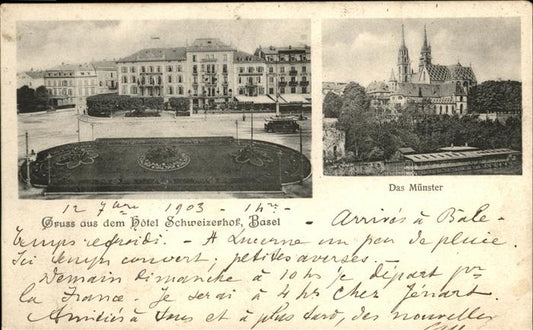 Das Münster
12 7bre 1903 - 1h
Gruss aus dem Hôtel Schweizerhof, Basel
- Arrivés à Bâle -
Temps refroidi. - A Lucerne un peu de pluie.
Ici temps couvert; petites averses.
Demain dimanche à 10 hrs je départ pr
la France. Je serai à 4 hrs chez
Amitiés à tous et à plus tard, des nouvelles